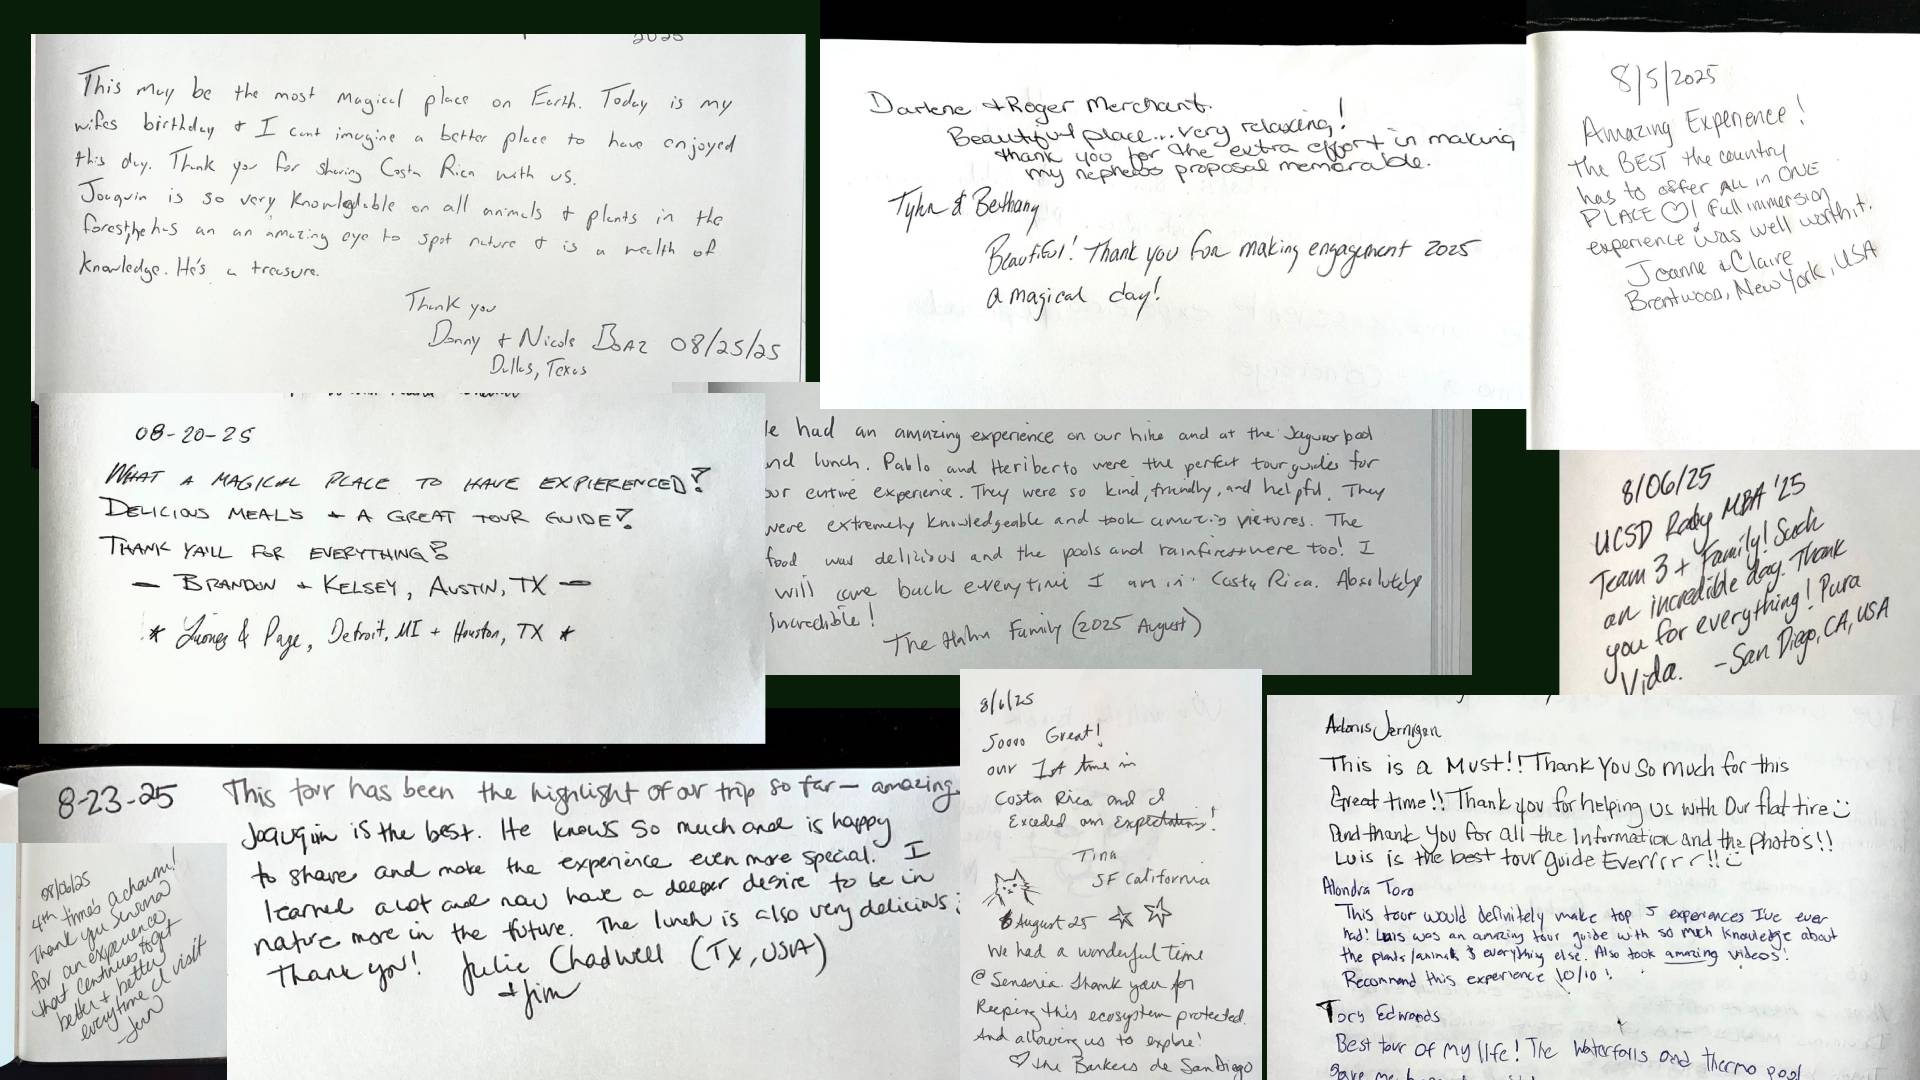 2025
This may be the most magical place on Earth. Today is my
wifes birthday & I cant imagine a better place to have enjoyed
this day. Thank you for sharing Costa Rica with us.
Joaquin is so very knowledgable on all animals & plants in the
forest, he has an an amazing eye to spot nature & is a wealth of
knowledge. He's a treasure.
Thank you
Danny & Nicole Boaz 08/25/25
Dallas, Texas
Darlene + Roger Merchant.
Beautiful place... very relaxing!
thank you for the extra effort in making
my nephews proposal memorable.
& Bethany
Beautiful! Thank you for making engagement 2025
a magical day!
8/5/2025
Amazing Experience!
The BEST the country
has to offer ALL in ONE
PLACE ♡! Full immersion
experience was well worth it.
Joanne + Claire
Brentwood, New York, USA
08-20-25
WHAT A MAGICAL PLACE TO HAVE EXPIERENCED!
DELICIOUS MEALS + A GREAT TOUR GUIDE!
THANK YAILL FOR EVERYTHING!
— BRANDON + KELSEY, AUSTIN, TX —
* & Page, Detroit, MI + Houston, TX *
e had an amazing experience on our hike and at the Jaguar pool
nd lunch. Pablo and Heriberto were the perfect tour guides for
our entire experience. They were so kind, friendly, and helpful. They
were extremely knowledgeable and took amazing pictures. The
food was delicious and the pools and rainforest were too! I
will come back everytime I am in Costa Rica. Absolutely
Incredible!
The Hahn Family (2025 August)
8/06/25
UCSD Rady MBA '25
Team 3 + Family! Such
an incredible day. Thank
you for everything! Pura
Vida. - San Diego, CA, USA
8-23-25
This tour has been the highlight of our trip so far — amazing.
Joaquin is the best. He knows so much and is happy
to share and make the experience even more special. I
learned a lot and now have a deeper desire to be in
nature more in the future. The lunch is also very delicious!
Thank you! Julie Chadwell (TX, USA)
+ Jim
08/06/25
4th time's a charm!
Thank you Sensoria
for an experience
that continues to get
better + better
everytime I visit
- Jenn
8/6/25
Soooo Great!
our 1st time in
Costa Rica and I
Exceded am Expectations!
Tina
SF California
6 August 25
We had a wonderful time
@ Sensoria. Thank you for
Keeping this ecosystem protected.
And allowing us to explore!
♡ the Barkers de San Diego
Adonis Jernigan
This is a Must!! Thank you so much for this
Great time!! Thank you for helping us with our flat tire
And thank you for all the Information and the photos!!
Luis is the best tour guide Everrrrr!!
Alondra Toro
This tour would definitely make top 5 experiences I've ever
had! Luis was an amazing tour guide with so much knowledge about
the plants/animals & everything else. Also took amazing videos!
Recommend this experience 10/10!
Tory Edwards
Best tour of my life! The Waterfalls and thermo pool
gave me